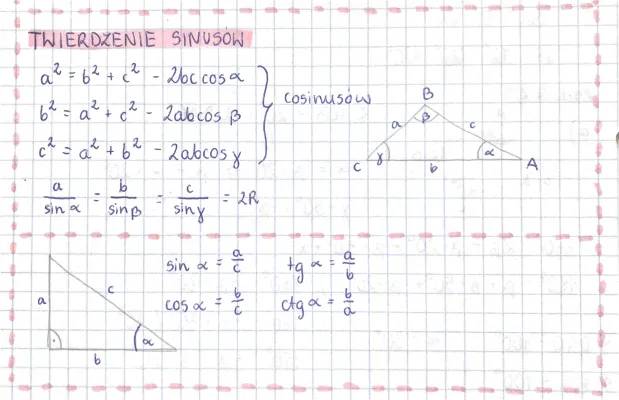 TWIERDZENIE SINUSÓW
a² = b² + c² - 2bc cos α
b² = a² + c² - 2abcos β
c² = a² + b² - 2abcos γ
cosinusów
a/sin α = b/sin β = c/sin γ = 2R
B
a
β
c
C
γ
b
α
A
sin α = a/c
tg α = a/b
cos α = b/c
ctg α = b/a
a
c
α
b